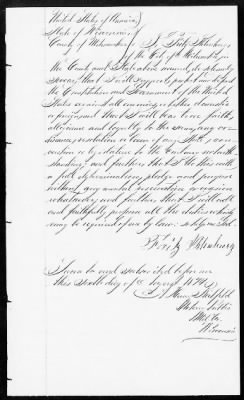 United States of America
State of Wisconsin
County of Milwaukee
I, Fritz
of the City of Milwaukee, in
the County and State above named, do solemnly
swear, that I will support, protect and defend
the Constitution and Government of the United
States against all enemies, whether domestic
or foreign and that I will bear true faith,
allegiance and loyalty to the same, any ordi-
nance, resolution or law of any State, con-
vention or legislature to the contrary notwith-
standing, and further, that I do this with
a full determination, pledge and purpose
without any mental reservation or evasion
whatsoever, and further, that I will well
and faithfully perform all the duties which
may be required of me by law: so help me God.
Fritz
Sworn to and subscribed before me
this day of August
Wisconsin